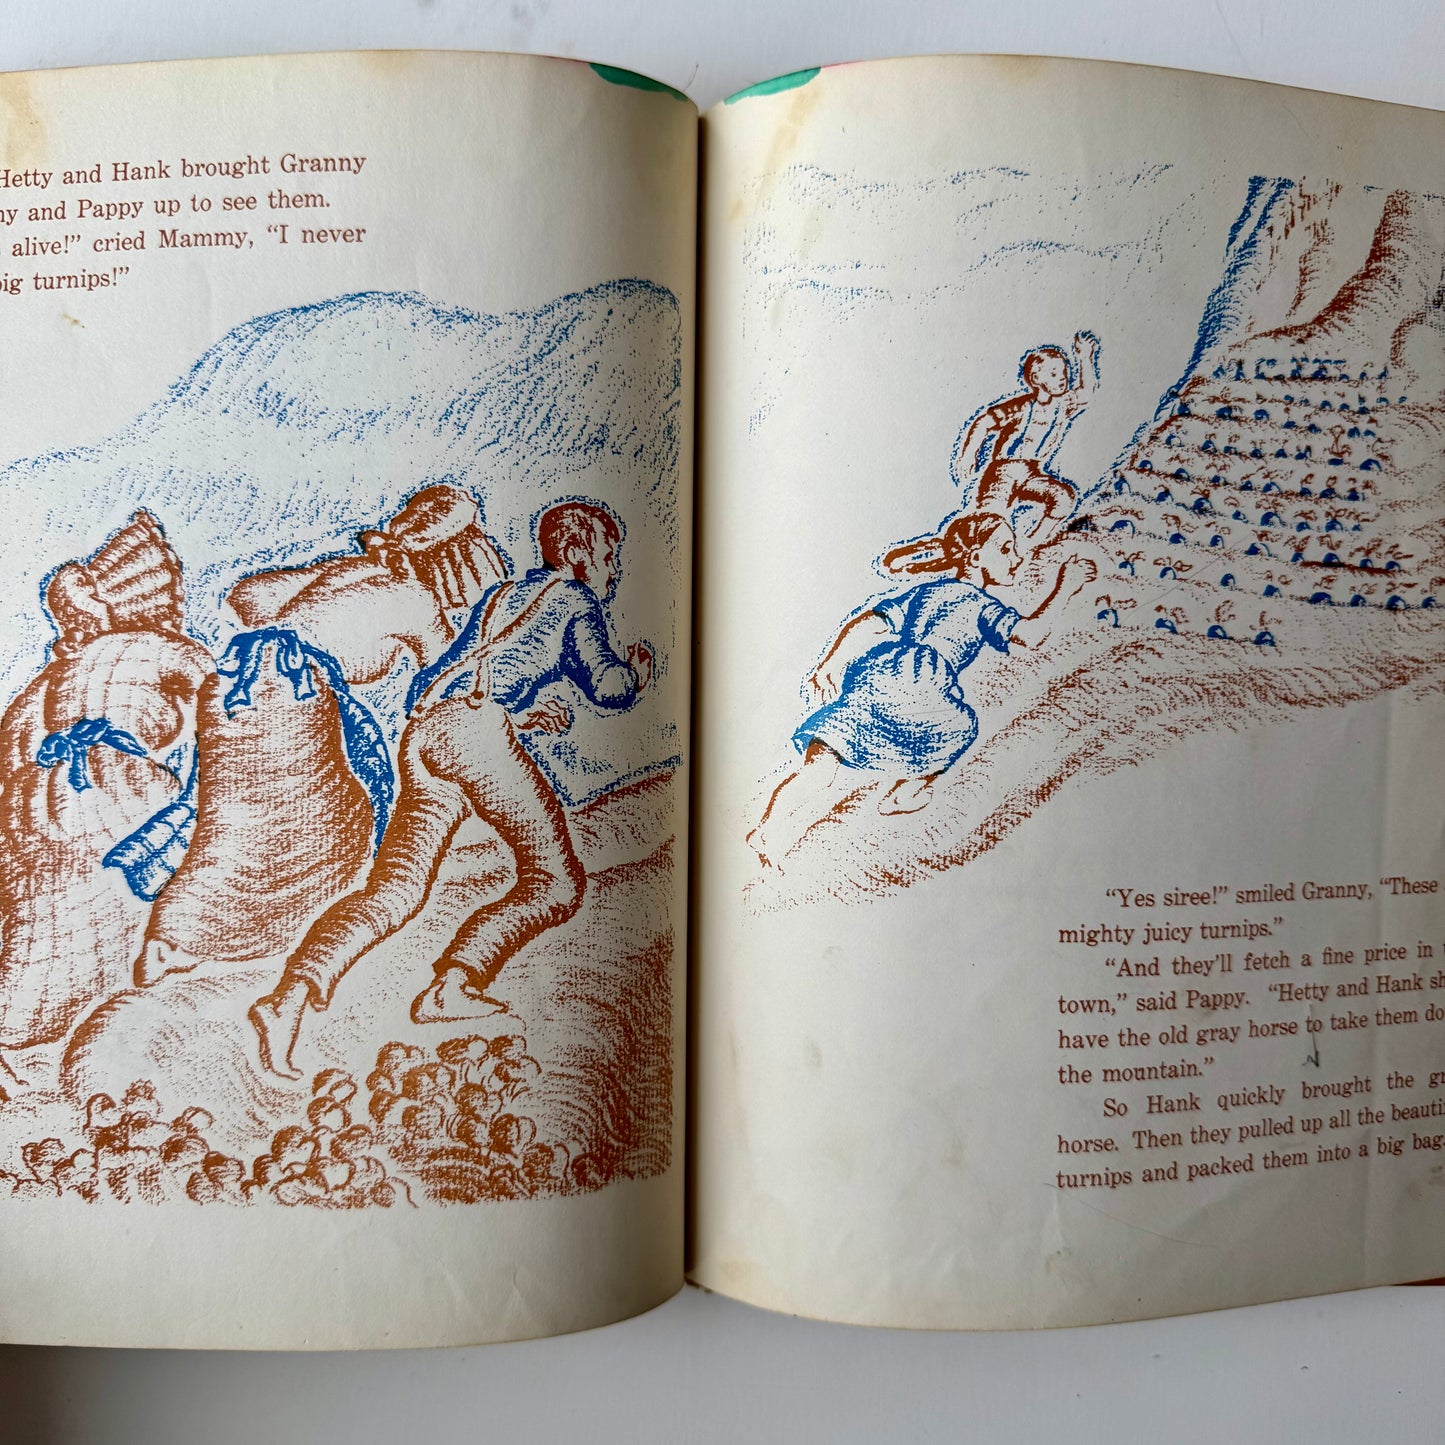 Hetty and Hank brought Granny
and Pappy up to see them.
alive!” cried Mammy, “I never
big turnips!”
“Yes siree!” smiled Granny, “These
mighty juicy turnips.”
“And they’ll fetch a fine price in
town,” said Pappy. “Hetty and Hank
have the old gray horse to take them
the mountain.”
So Hank quickly brought the
horse. Then they pulled up all the
turnips and packed them into a big